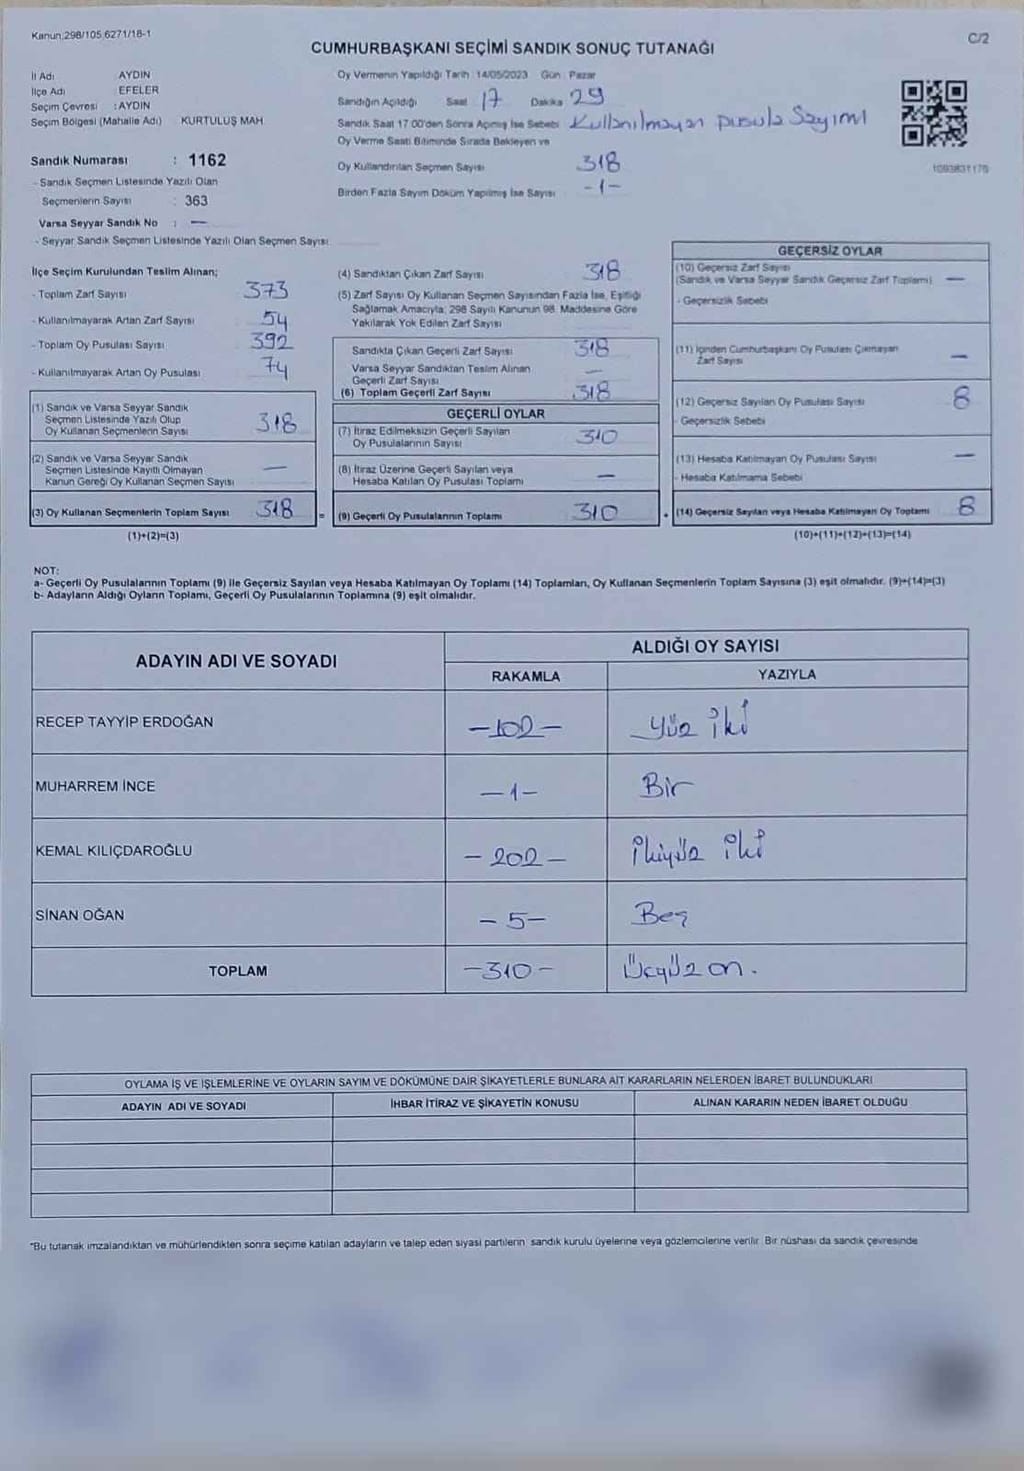 Kanun;298/105,6271/18-1
C/2
CUMHURBAŞKANI SEÇİMİ SANDIK SONUÇ TUTANAĞI
İl Adı : AYDIN
İlçe Adı : EFELER
Seçim Çevresi : AYDIN
Seçim Bölgesi (Mahalle Adı) KURTULUŞ MAH.
Sandık Numarası : 1162
- Sandık Seçmen Listesinde Yazılı Olan
Seçmenlerin Sayısı : 363
Varsa Seyyar Sandık No : —
- Seyyar Sandık Seçmen Listesinde Yazılı Olan Seçmen Sayısı
Oy Vermenin Yapıldığı Tarih : 14/05/2023 Gün : Pazar
Sandığın Açıldığı Saat 17 Dakika 29
Sandık Saat 17.00'den Sonra Açımış İse Sebebi Kullanılmayan pusula Sayımı
Oy Verme Saati Bitiminde Sırada Bekleyen ve
Oy Kullandırılan Seçmen Sayısı 318
Birden Fazla Sayım Döküm Yapılmış İse Sayısı -1-
1093831176
İlçe Seçim Kurulundan Teslim Alınan;
- Toplam Zarf Sayısı 373
- Kullanılmayarak Artan Zarf Sayısı 54
- Toplam Oy Pusulası Sayısı 392
- Kullanılmayarak Artan Oy Pusulası 74
(1) Sandık ve Varsa Seyyar Sandık
Seçmen Listesinde Yazılı Olup
Oy Kullanan Seçmenlerin Sayısı 318
(2) Sandık ve Varsa Seyyar Sandık
Seçmen Listesinde Kayıtlı Olmayan
Kanun Gereği Oy Kullanan Seçmen Sayısı —
(3) Oy Kullanan Seçmenlerin Toplam Sayısı 318 =
(1)+(2)=(3)
(4) Sandıktan Çıkan Zarf Sayısı 318
(5) Zarf Sayısı Oy Kullanan Seçmen Sayısından Fazla İse, Eşitliği
Sağlamak Amacıyla; 298 Sayılı Kanunun 98. Maddesine Göre
Yakılarak Yok Edilen Zarf Sayısı
Sandıkta Çıkan Geçerli Zarf Sayısı 318
Varsa Seyyar Sandıktan Teslim Alınan
Geçerli Zarf Sayısı —
(6) Toplam Geçerli Zarf Sayısı 318
GEÇERLİ OYLAR
(7) İtiraz Edilmeksizin Geçerli Sayılan
Oy Pusulalarının Sayısı 310
(8) İtiraz Üzerine Geçerli Sayılan veya
Hesaba Katılan Oy Pusulası Toplamı —
(9) Geçerli Oy Pusulalarının Toplamı 310 +
GEÇERSİZ OYLAR
(10) Geçersiz Zarf Sayısı
(Sandık ve Varsa Seyyar Sandık Geçersiz Zarf Toplamı) —
- Geçersizlik Sebebi
(11) İçinden Cumhurbaşkanı Oy Pusulası Çıkmayan
Zarf Sayısı —
(12) Geçersiz Sayılan Oy Pusulası Sayısı 8
- Geçersizlik Sebebi
(13) Hesaba Katılmayan Oy Pusulası Sayısı —
- Hesaba Katılmama Sebebi
(14) Geçersiz Sayılan veya Hesaba Katılmayan Oy Toplamı 8
(10)+(11)+(12)+(13)=(14)
NOT:
a- Geçerli Oy Pusulalarının Toplamı (9) ile Geçersiz Sayılan veya Hesaba Katılmayan Oy Toplamı (14) Toplamları, Oy Kullanan Seçmenlerin Toplam Sayısına (3) eşit olmalıdır. (9)+(14)=(3)
b- Adayların Aldığı Oyların Toplamı, Geçerli Oy Pusulalarının Toplamına (9) eşit olmalıdır.
ADAYIN ADI VE SOYADI
ALDIĞI OY SAYISI
RAKAMLA YAZIYLA
RECEP TAYYİP ERDOĞAN -102- Yüz iki
MUHARREM İNCE -1- Bir
KEMAL KILIÇDAROĞLU -202- ikiyüz iki
SİNAN OĞAN -5- Beş
TOPLAM -310- Üçyüz on.
OYLAMA İŞ VE İŞLEMLERİNE VE OYLARIN SAYIM VE DÖKÜMÜNE DAİR ŞİKAYETLERLE BUNLARA AİT KARARLARIN NELERDEN İBARET BULUNDUKLARI
ADAYIN ADI VE SOYADI İHBAR İTİRAZ VE ŞİKAYETİN KONUSU ALINAN KARARIN NEDEN İBARET OLDUĞU
*Bu tutanak imzalandıktan ve mühürlendikten sonra seçime katılan adayların ve talep eden siyasi partilerin sandık kurulu üyelerine veya gözlemcilerine verilir. Bir nüshası da sandık çevresinde